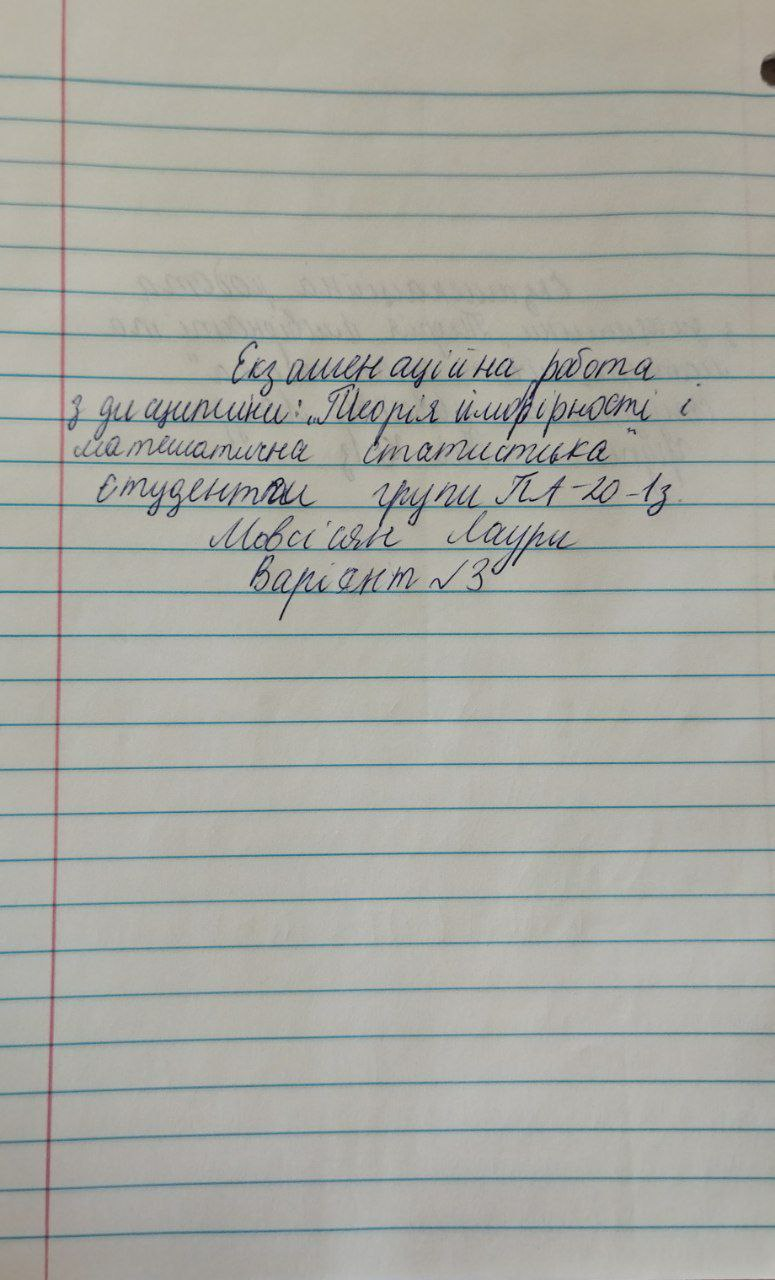 Екзаменаційна робота
з дисципліни: „Теорія ймовірності і
математична статистика"
студентки групи ПА-20-1з
Мовсісян Лаури
Варіант №3